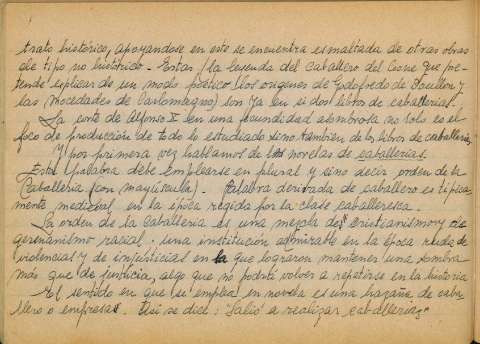 trato histórico, apoyandose en esto se encuentra esmaltada de otras obras
de tipo no histórico. Estas (la leyenda del Caballero del Cisne que pre-
tende esplicar de un modo poetico los origenes de Godofredo de Bouillon y
las Mocedades de Carlomagno) son ya en si dos libros de caballerias.
La corte de Alfonso X en una fecundidad asombrosa no solo es el
foco de producción de todo lo estudiado sino tambien de los libros de caballeria.
Y por primera vez hablamos de las novelas de caballerias.
Esta palabra debe emplearse en plural y sino decir orden de la
Caballeria (con mayúscula). Palabra derivada de caballero es tipica-
mente medieval en la época regida por la clase caballeresca.
La orden de la Caballeria es una mezcla de cristianismo y de
germanismo racial. una institución admirable en la época ruda de
violencias y de injusticias en la que lograron mantener una sombra
más que de justicia, algo que no podrá volver a repetirse en la historia
El sentido en que se emplea en novela es una hazaña de caba-
llero o empresas. Asi se dice: "Salió a realizar caballerias"